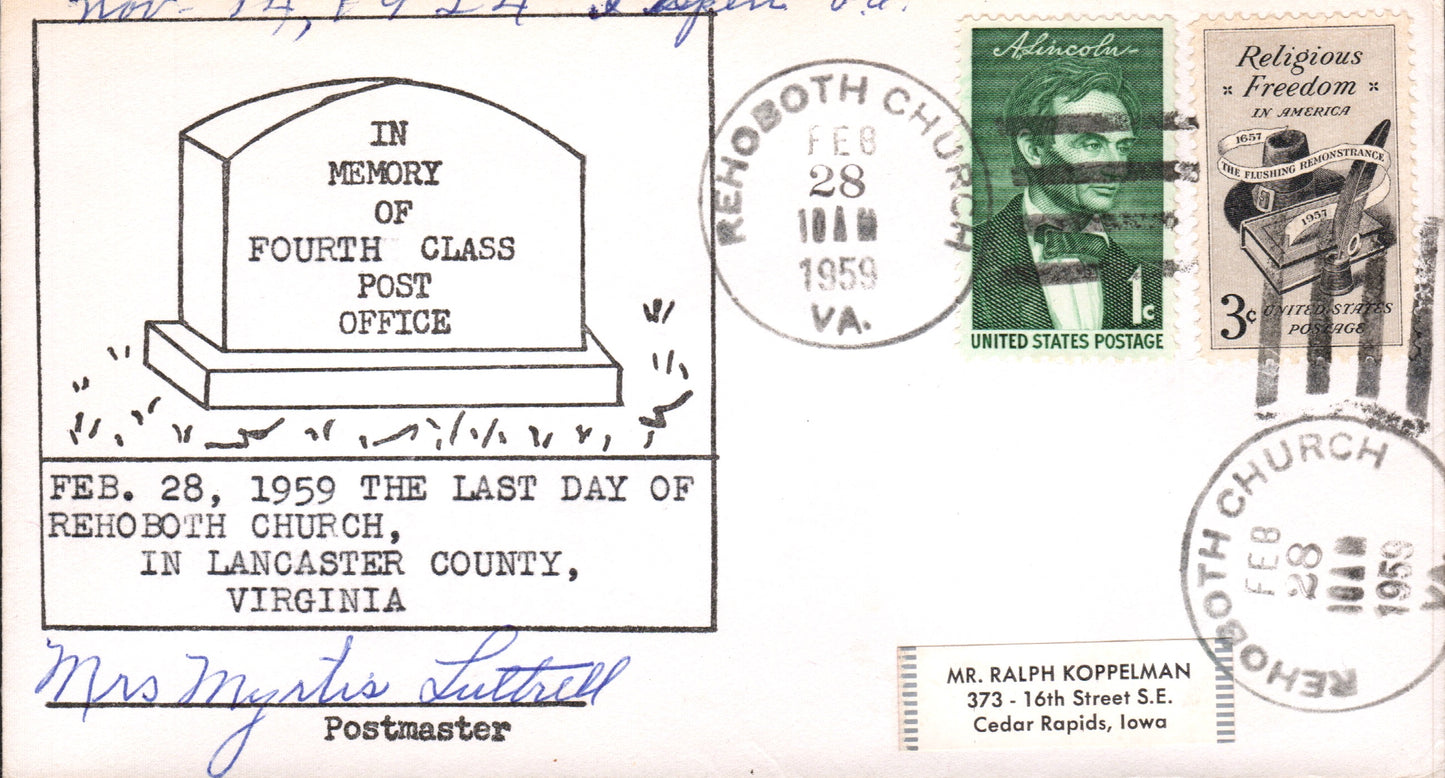 Nov- 14, 1924
IN
MEMORY
OF
FOURTH CLASS
POST
OFFICE
FEB. 28, 1959 THE LAST DAY OF
REHOBOTH CHURCH,
IN LANCASTER COUNTY,
VIRGINIA
Mrs Myrtis Luttrell
Postmaster
REHOBOTH CHURCH
FEB
28
10 AM
1959
VA.
A. Lincoln
1c
UNITED STATES POSTAGE
Religious
Freedom
IN AMERICA
1657
THE FLUSHING REMONSTRANCE
1957
3c
UNITED STATES
POSTAGE
REHOBOTH CHURCH
FEB
28
10 AM
1959
VA
MR. RALPH KOPPELMAN
373 - 16th Street S.E.
Cedar Rapids, Iowa